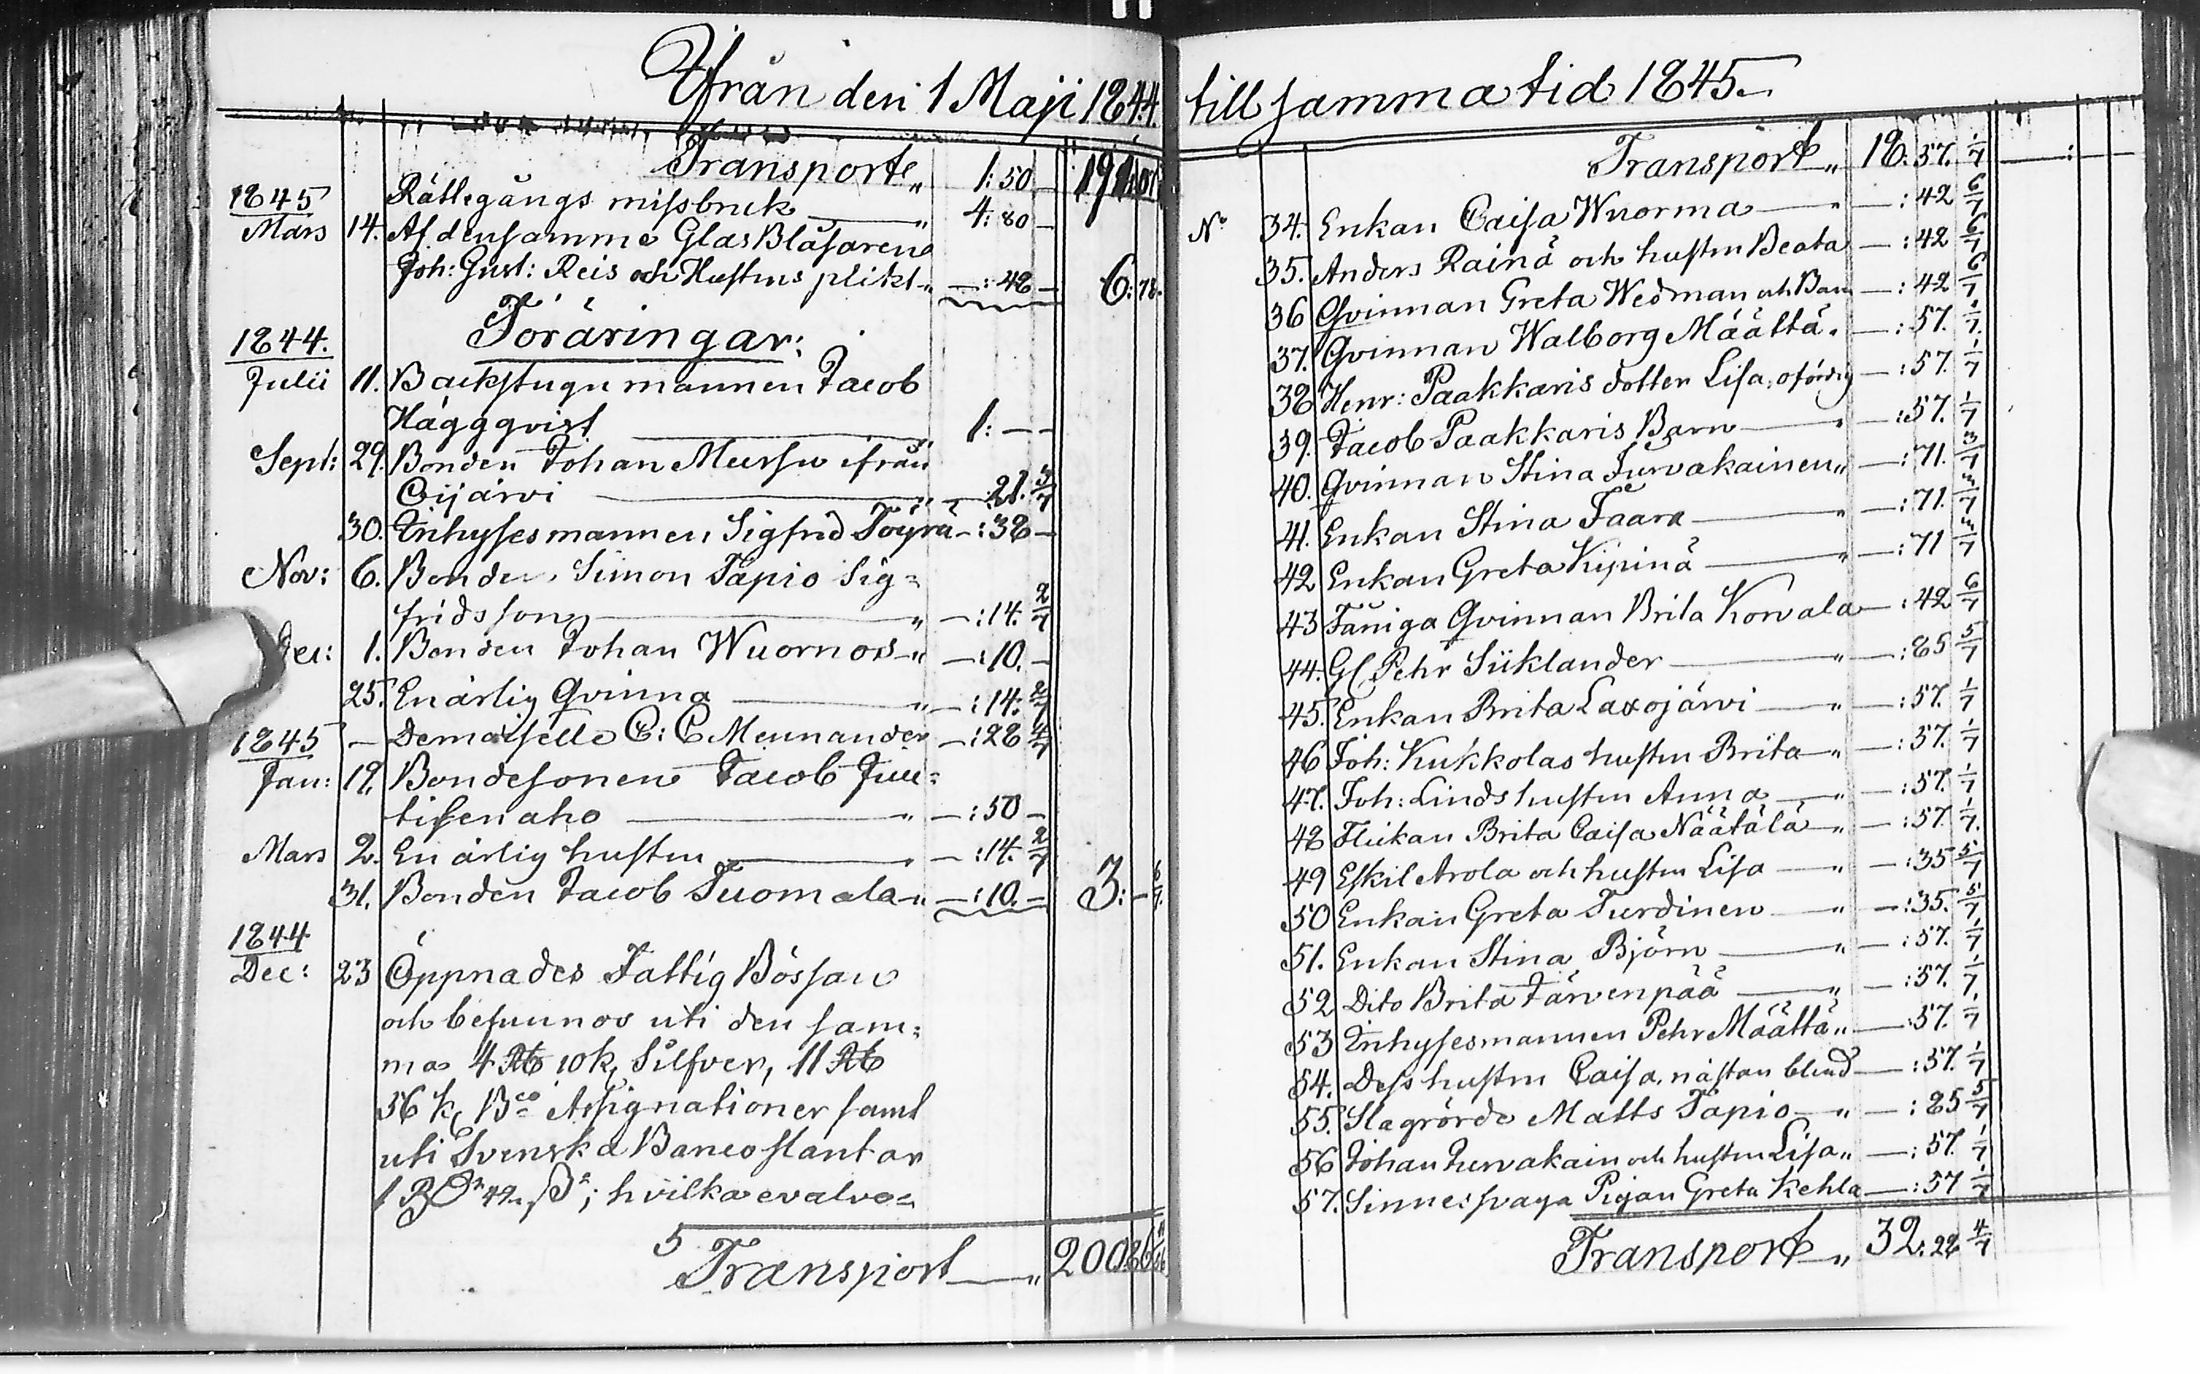 Ifrån den 1 Maji 1844.
Transport „ 1: 50 —
1845 Rättegångs missbruk — „ 4: 80 —
Mars 14. Af densamme Glas Blåsaren
Joh: Gust: Reis och Hustrus plikt „ —: 48 — 6: 78.
Föräringar:
1844.
Julii 11. Backstugu mannen Jacob
Häggqvist 1: — —
Sept: 29. Bonden Johan Mursu ifrån
Oijärvi — „ —: 21. 3/7
30. Inhyses mannen Sigfrid Töyrä —: 38 —
Nov: 6. Bonden Simon Tapio Sig=
fridsson — „ —: 14. 2/7
Dec: 1. Bonden Johan Wuornos „ —: 10. —
25. En ärlig Qvinna — „ —: 14. 2/7
1845 — Demoiselle C: C Meunander —: 28 4/7
Jan: 19. Bondesonen Jacob Juu=
tisenaho — „ —: 50 —
Mars 2. En ärlig hustru — „ —: 14. 2/7
31. Bonden Jacob Tuomala „ —: 10. — 3: — 6/7.
1844
Dec: 23 Öppnades Fattig Bössan
och befunnos uti den sam=
ma 4 Rb 10 k, Silfver, 11 Rb
56 k, Bco Assignationer samt
uti Svenska Banco slantar
1 RD 42 ß; hvilka evalve=
5
Transport — „ 200
till samma tid 1845.
Transport „ 18. 57. 1/7 — : —
No 34. Enkan Caisa Wuorma — „ —: 42 6/7
35. Anders Rainä och hustru Beata —: 42 6/7
36 Qvinnan Greta Wedman och Barn —: 42 6/7
37. Qvinnan Walborg Määttä. —: 57. 1/7.
38 Henr: Paakkaris dotter Lisa, ofärdig —: 57. 1/7
39. Jacob Paakkaris Barn — „ —: 57. 1/7
40. Qvinnan Stina Jurvakainen „ —: 71. 3/7
41. Enkan Stina Faara — „ —: 71. 3/7
42 Enkan Greta Kipinä — „ —: 71 3/7
43 Fåniga Qvinnan Brita Korvala —: 42 6/7
44. Gl Pehr Siiklander — „ —: 85 5/7
45. Enkan Brita Laxojärvi — „ —: 57. 1/7
46 Joh: Kukkolas hustru Brita „ —: 57. 1/7
47. Joh: Linds hustru Anna — „ —: 57. 1/7
48 Flickan Brita Caisa Näätälä „ —: 57. 1/7.
49 Eskil Arola och hustru Lisa — „ —: 35 5/7
50 Enkan Greta Turdinen — „ —: 35. 5/7
51. Enkan Stina Björn — „ —: 57. 1/7
52 Dito Brita Järvenpää — „ —: 57. 1/7
53 Inhysesmannen Pehr Määttä „ —: 57. 1/7
54. Dess hustru Caisa, nästan blind —: 57. 1/7
55. Slagrörde Matts Tapio „ —: 85 5/7
56 Johan Jurvakain och hustru Lisa „ —: 57. 1/7
57. Sinnessvaga Pigan Greta Kehla —: 57 1/7
Transport „ 32. 28 4/7